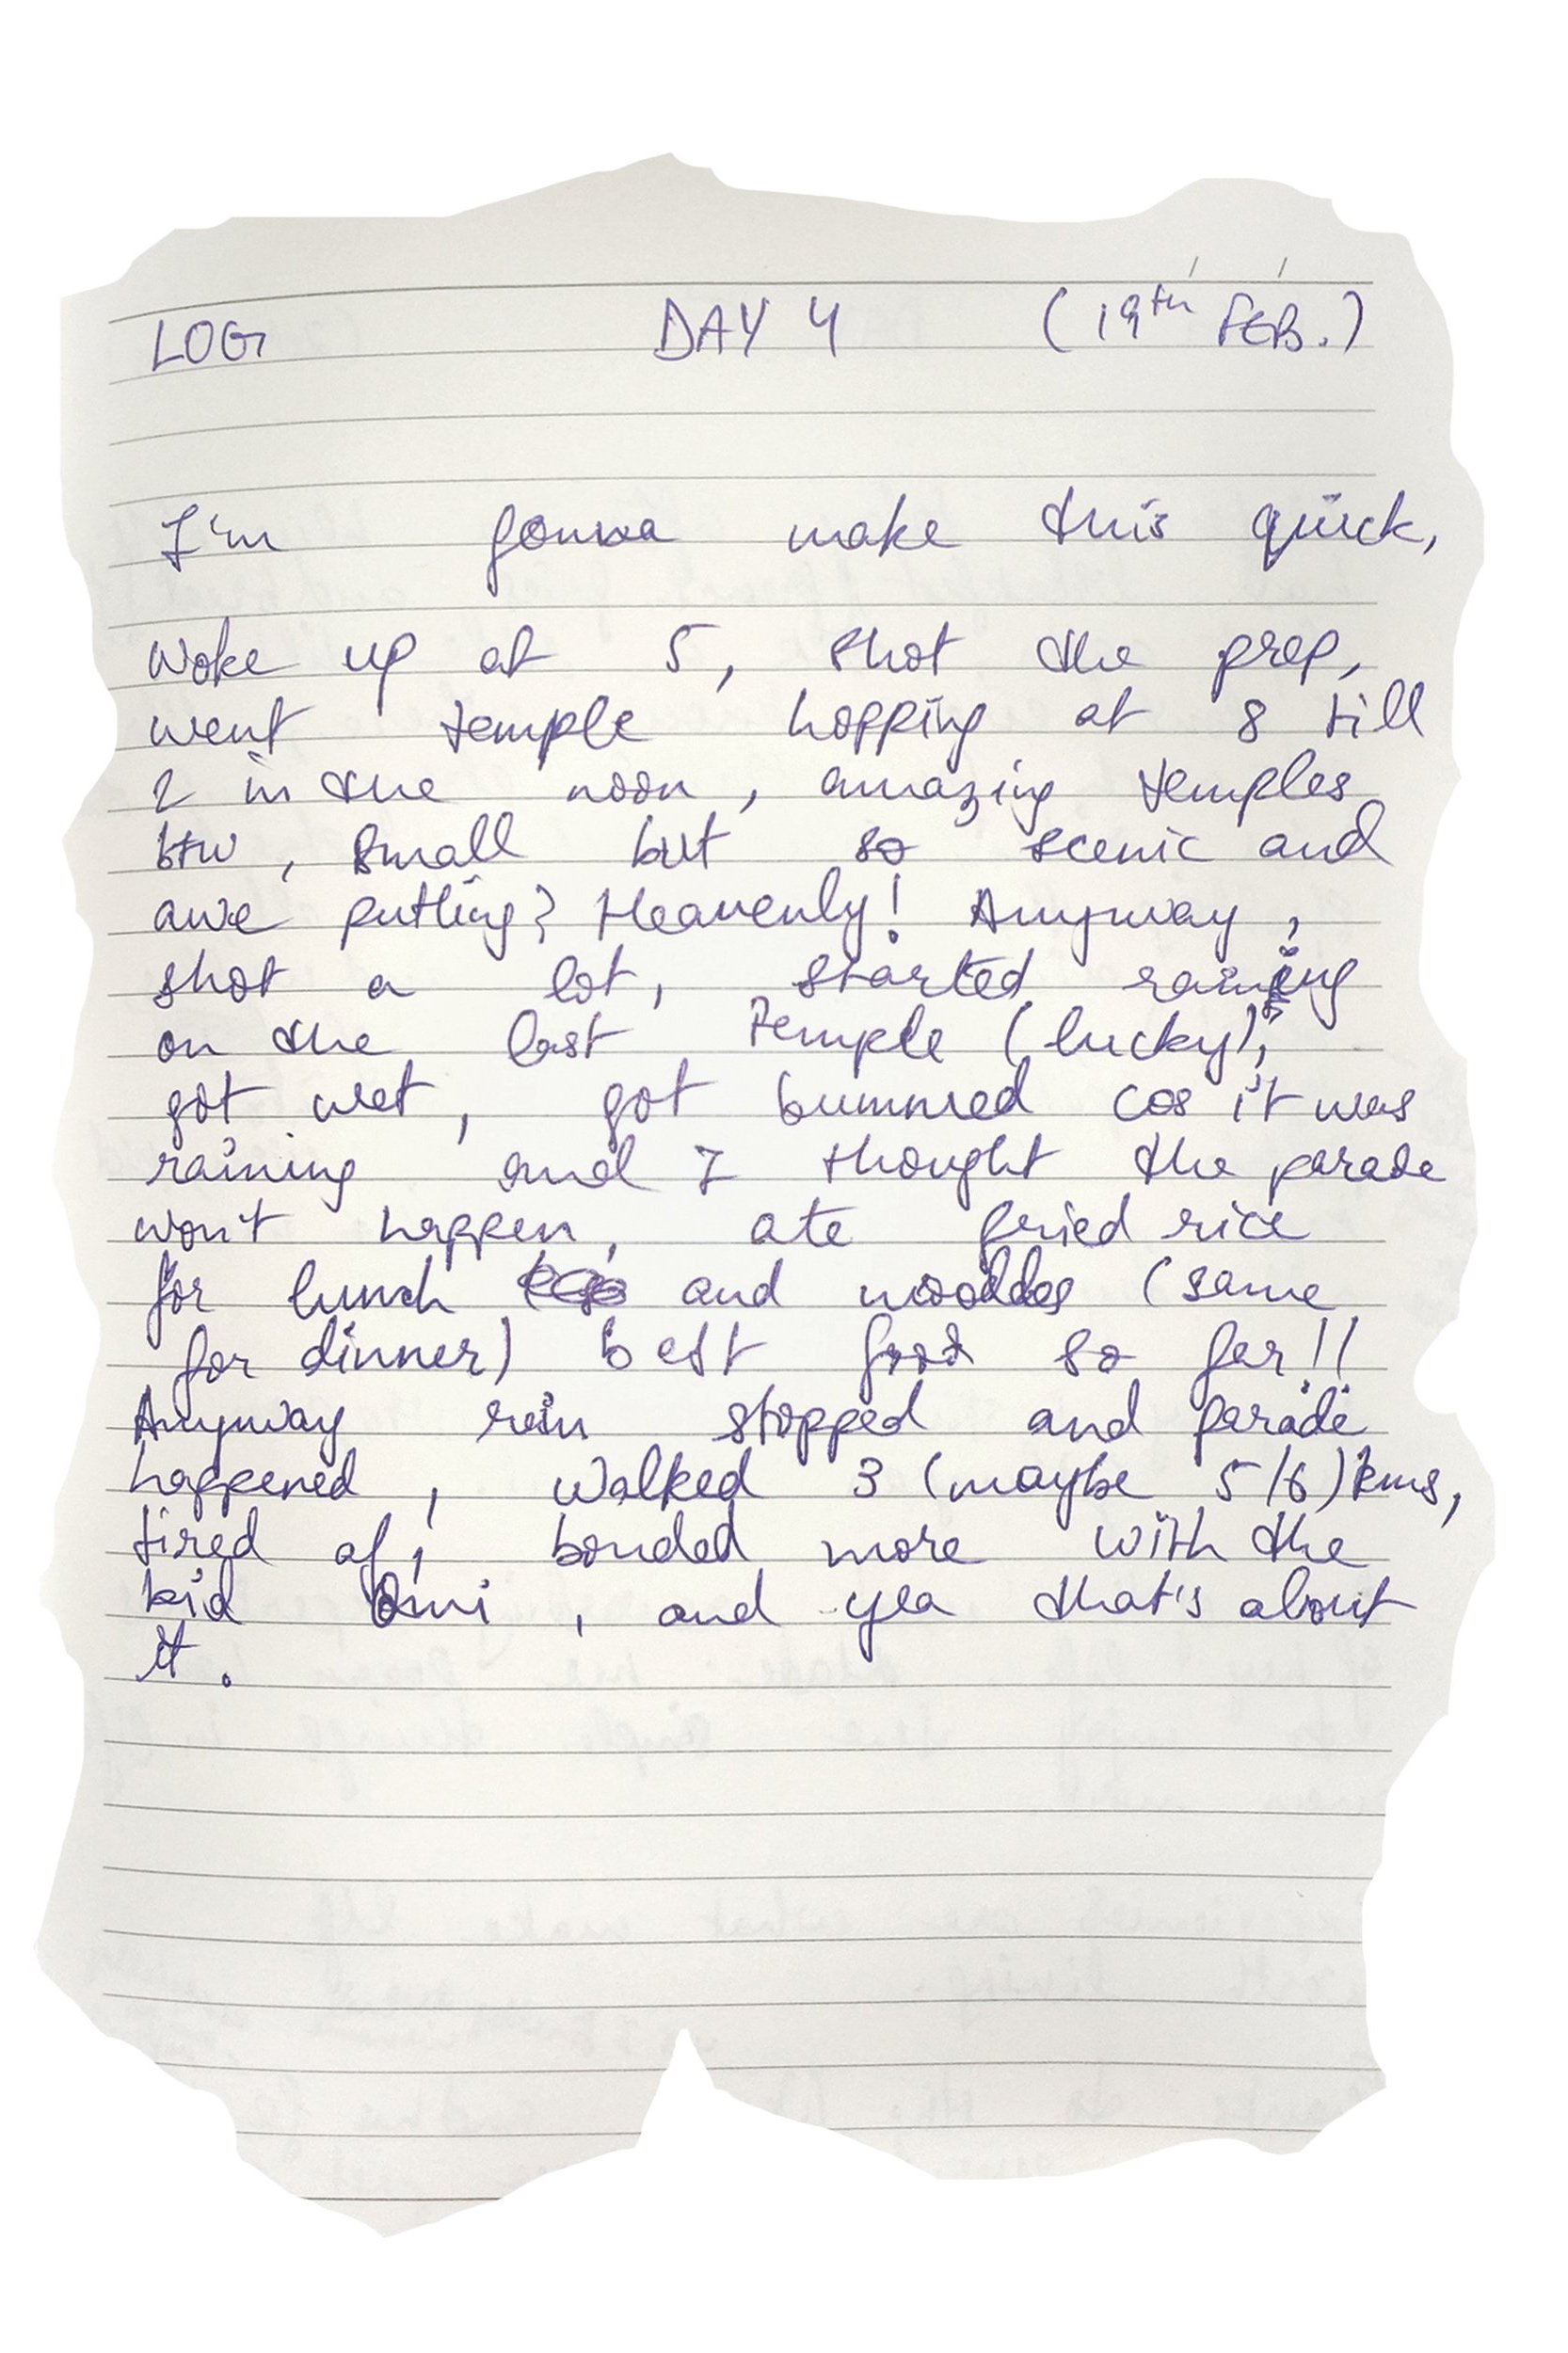 LOG DAY 4 (19th FEB.)
I'm gonna make this quick,
Woke up at 5, shot the prep,
went temple hopping at 8 till
2 in the noon, amazing temples
btw, small but so scenic and
awe putting? Heavenly! Anyway,
shot a lot, started raining
on the last temple (lucky),
got wet, got bummed cos it was
raining and I thought the parade
won't happen, ate fried rice
for lunch and nooddes (same
for dinner) best food so far!!
Anyway rain stopped and parade
happened, walked 3 (maybe 5/6) kms,
tired af, bonded more with the
kid Omi, and yea that's about
it.